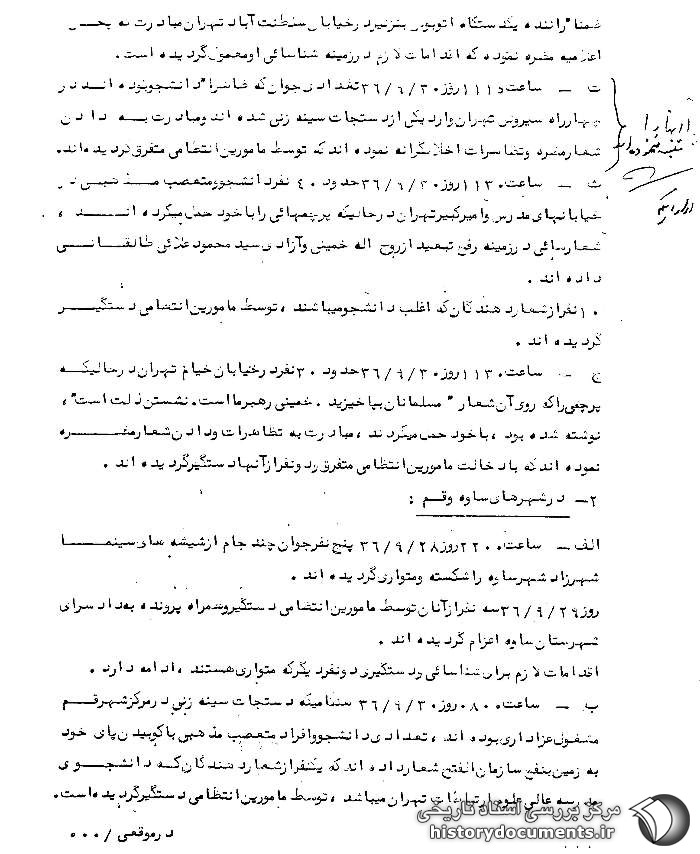 ضمنا" راننده یکدستگاه اتوبوس بنز نیز در خیابان سلطنت آباد تهران مبادرت به پخش
اعلامیه مضره نموده که اقدامات لازم در زمینه شناسائی او معمول گردیده است.
ت ـ ساعت ۱۱۱۵ روز ۳۶/۹/۳۰ تعدادی جوان که ظاهرا" دانشجو بوده اند در
چهارراه سیروس تهران وارد یکی از دستجات سینه زنی شده اند و مبادرت به دادن
شعار مضره و تظاهرات اخلالگرانه نموده اند که توسط مامورین انتظامی متفرق گردیده‌اند.
ث ـ ساعت ۱۱۳۰ روز ۳۶/۹/۳۰ حدود ۴۰ نفر دانشجو و متعصب مذهبی در
خیابانهای مدرس و امیرکبیر تهران در حالیکه پرچمهائی را با خود حمل میکرده انـــد ،
شعارهائی در زمینه رفع تبعید از روح اله خمینی و آزادی سید محمود علائی طالقـــانـــی
داده اند .
۱۰ نفر از شعار دهندگان که اغلب دانشجو میباشند ، توسط مامورین انتظامی دستگیـــر
گردیده اند .
ج ـ ساعت ۱۱۳۰ روز ۳۶/۹/۳۰ حدود ۳۰ نفر در خیابان خیام تهران در حالیکـه
پرچمی را که روی آن شعار " مسلمانان بپا خیزید . خمینی رهبر ما است. نشستن ذلت است" ،
نوشته شده بود ، با خود حمل میکردند ، مبادرت به تظاهرات و دادن شعار مضـــره
نموده اند که با دخالت مامورین انتظامی متفرق و دو نفر از آنها دستگیر گردیده اند .
۲ـ در شهرهای ساوه و قم :
الف ـ ساعت ۲۲۰۰ روز ۳۶/۹/۲۸ پنج نفر جوان چند جام از شیشه های سینمـــا
شهرزاد شهر ساوه را شکسته و متواری گردیده اند .
روز ۳۶/۹/۲۹ سه نفر از آنان توسط مامورین انتظامی دستگیر و همراه پرونده به دادسرای
شهرستان ساوه اعزام گردیده اند .
اقدامات لازم برای شناسائی و دستگیری دو نفر دیگر که متواری هستند ، ادامه دارد .
ب ـ ساعت ۰۸۰۰ روز ۳۶/۹/۳۰ هنگامیکه دستجات سینه زنی در مرکز شهر قـــم
مشغول عزاداری بوده اند ، تعدادی دانشجو و افراد متعصب مذهبی با کوبیدن پای خود
به زمین بنفع سازمان الفتح شعار داده اند که یکنفر از شعار دهندگان که دانشجـــوی
مدرسه عالی علوم ارتباطات تهران میباشد ، توسط مامورین انتظامی دستگیر گردیده‌است.
در موقعی / ۰۰۰
اینها را
مرکز بررسی اسناد تاریخی
historydocuments.ir